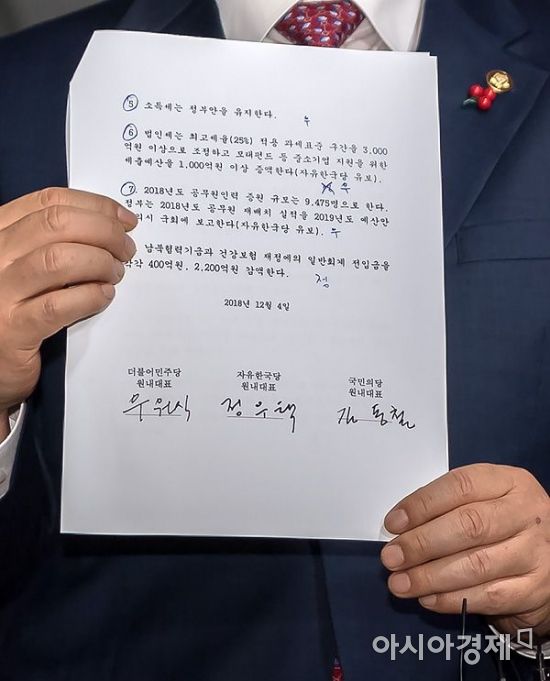 ⑤ 소득세는 정부안을 유지한다.
우
⑥ 법인세는 최고세율(25%) 적용 과세표준 구간을 3,000
억원 이상으로 조정하고 모태펀드 등 중소기업 지원을 위한
세출예산을 1,000억원 이상 증액한다(자유한국당 유보).
우
⑦ 2018년도 공무원인력 증원 규모는 9,475명으로 한다.
정부는 2018년도 공무원 재배치 실적을 2019년도 예산안
시 국회에 보고한다(자유한국당 유보). 우
남북협력기금과 건강보험 재정에의 일반회계 전입금을
각각 400억원, 2,200억원 감액한다. 정
2018년 12월 4일
더불어민주당 자유한국당 국민의당
원내대표 원내대표 원내대표
우원식 정우택 김동철
아시아경제